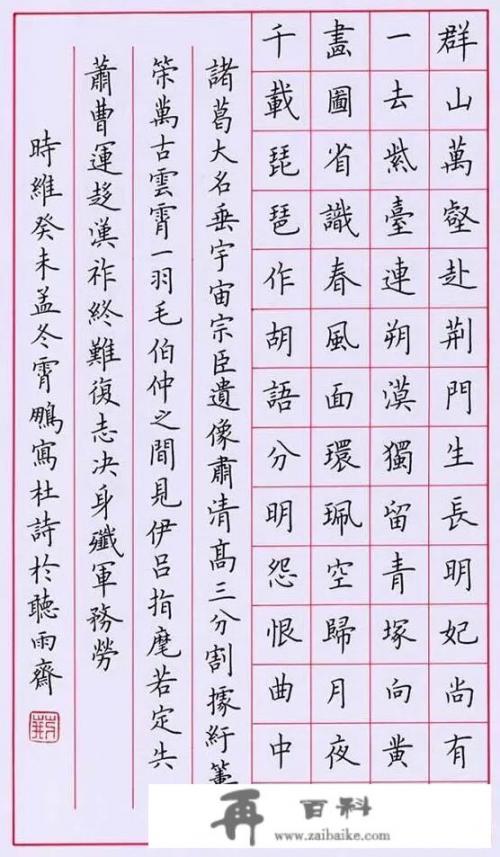 群山萬壑赴荆門生長明妃尚有
一去紫臺連朔漠獨留青塚向黄
畫圖省識春風面環珮空歸月夜
千載琵琶作胡語分明怨恨曲中
諸葛大名垂宇宙宗臣遺像肅清髙三分割據紆籌
策萬古雲霄一羽毛伯仲之間見伊吕指麾若定失
蕭曹運移漢祚終難復志决身殲軍務勞
時維癸未孟冬霄鵬寫杜詩於聽雨齋
再百科
www.zaibaike.com